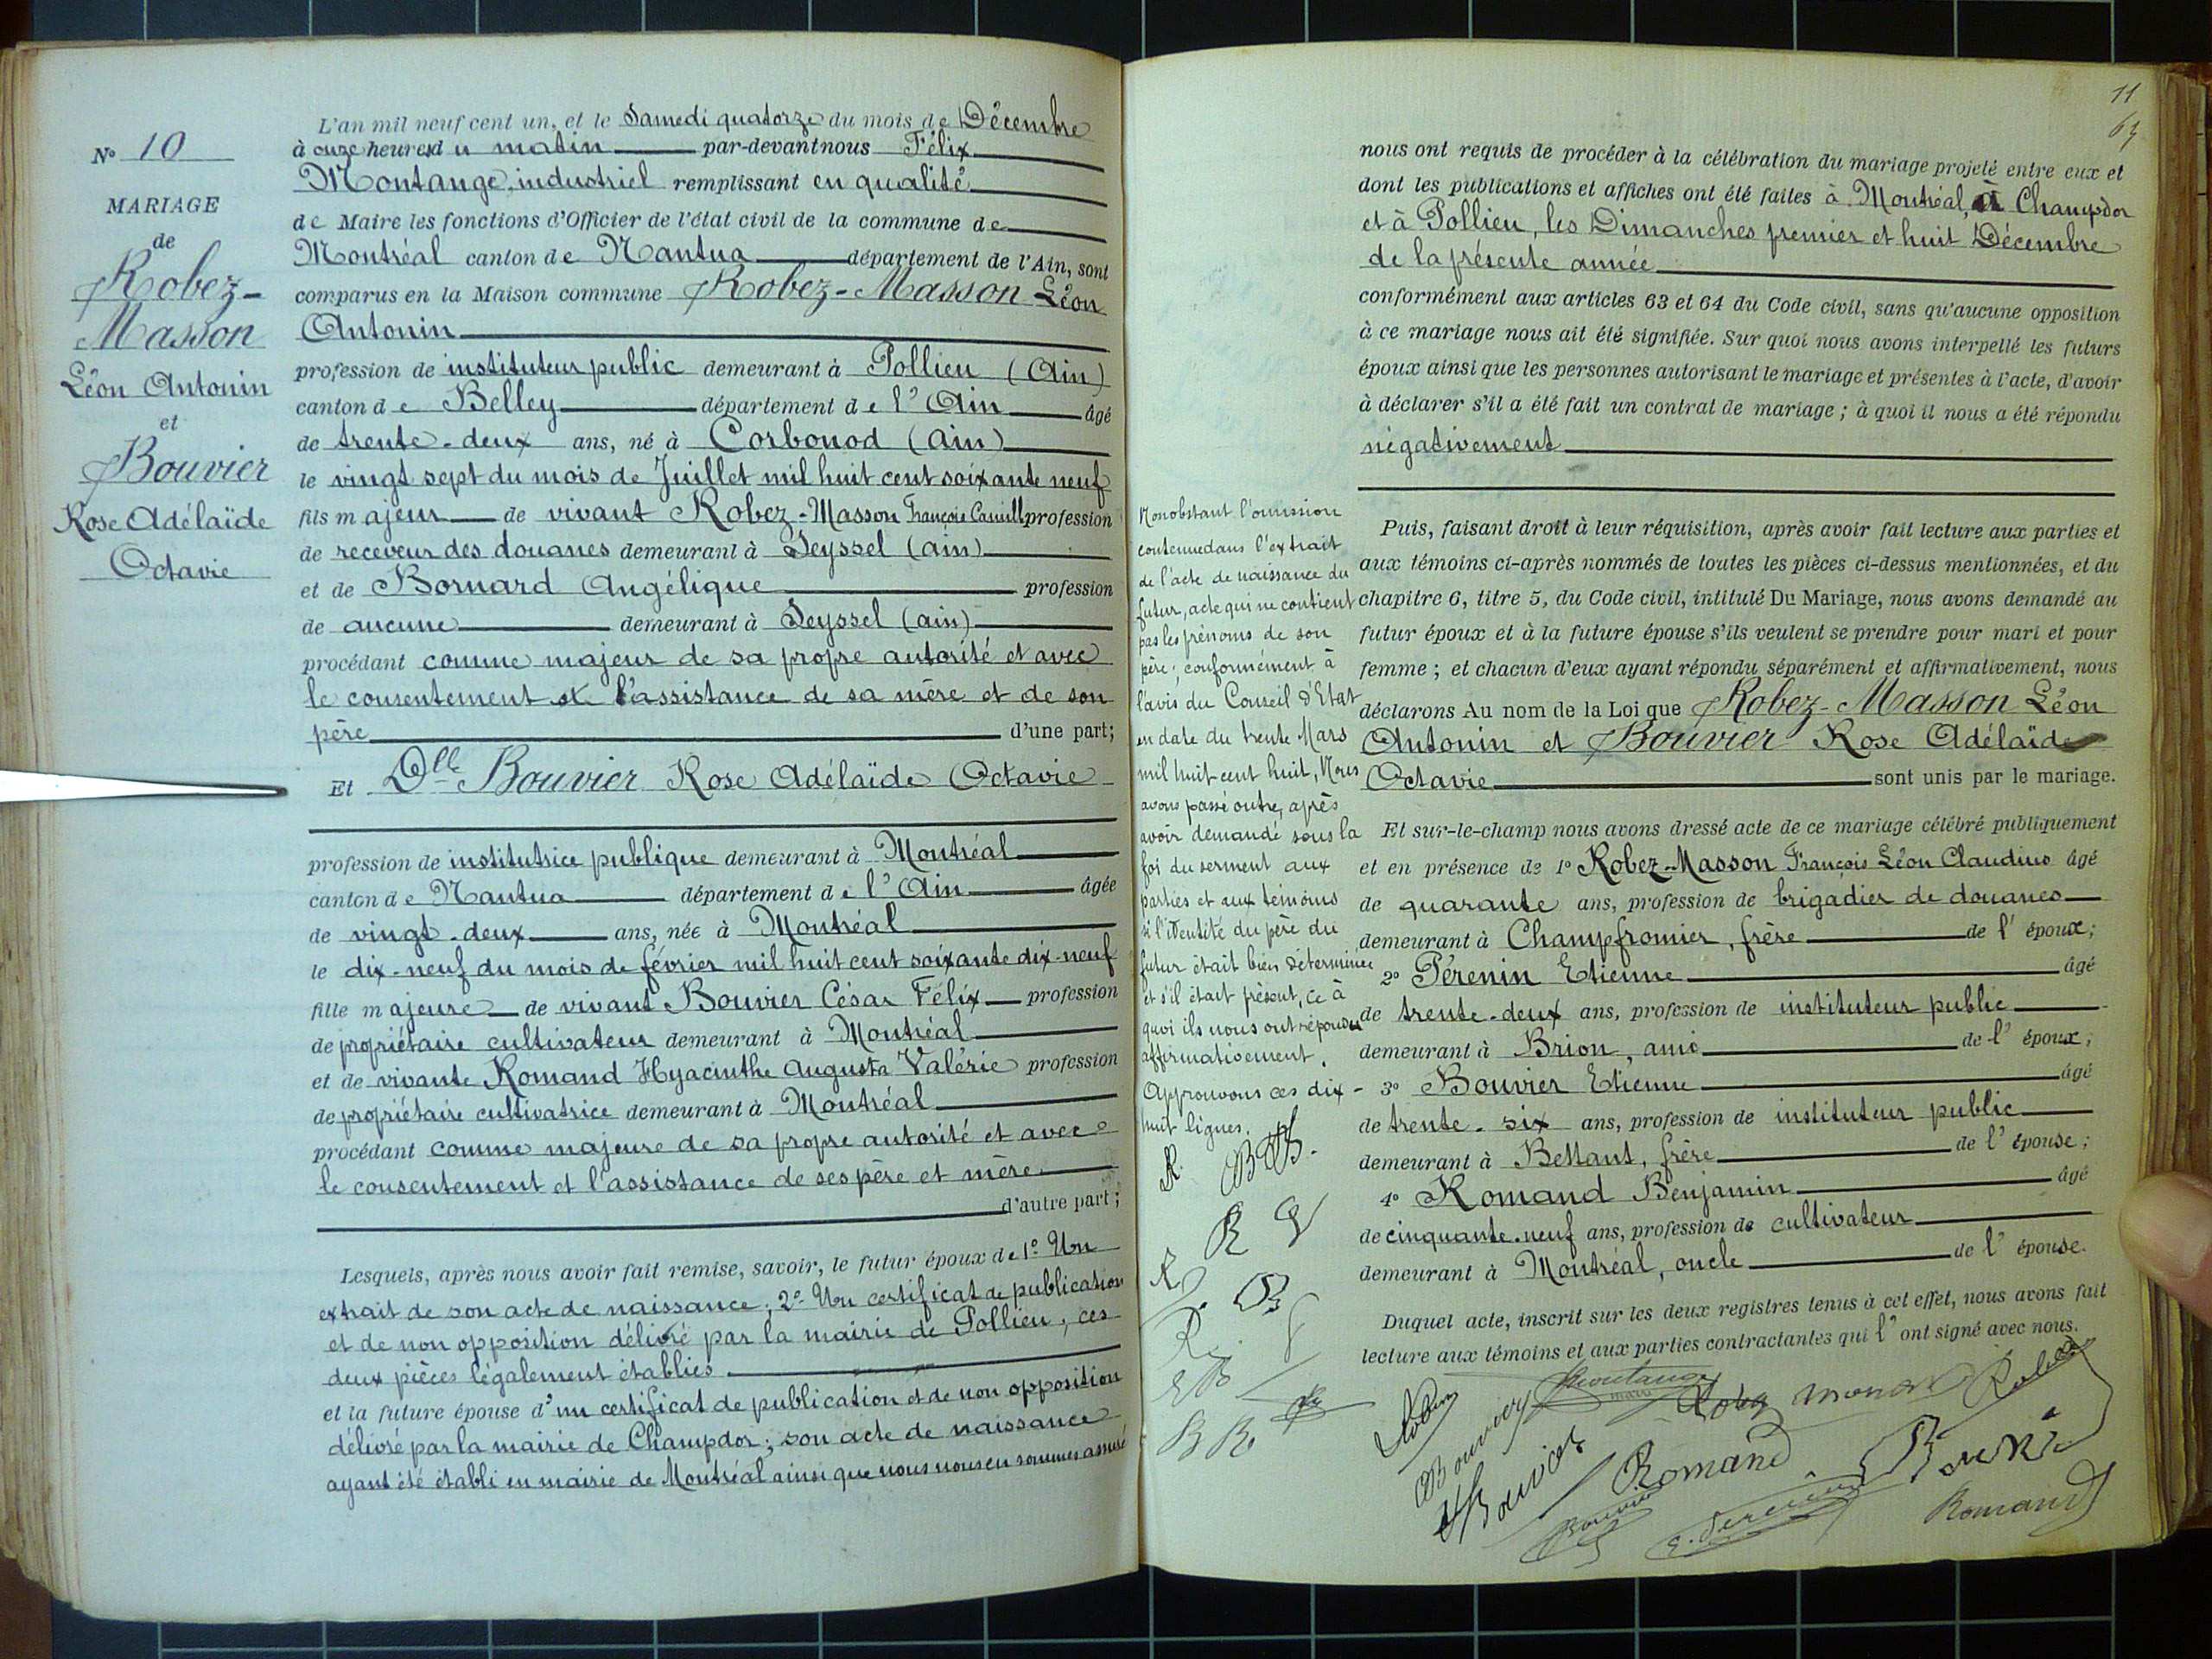 N° 10
MARIAGE
de
Robez-
Masson
Léon Antonin
et
Bouvier
Rose Adélaïde
Octavie
L'an mil neuf cent un, et le Samedi quatorze du mois de Décembre
à onze heures du matin par-devant nous Félix
Montange, industriel remplissant en qualité
de Maire les fonctions d'Officier de l'état civil de la commune de
Montréal canton de Nantua département de l'Ain, sont
comparus en la Maison commune Robez-Masson Léon
Antonin
profession de instituteur public demeurant à Pollieu (Ain)
canton de Belley département de l'Ain âgé
de trente-deux ans, né à Corbonod (Ain)
le vingt sept du mois de Juillet mil huit cent soixante neuf
fils majeur de vivant Robez-Masson François Camille profession
de receveur des douanes demeurant à Seyssel (ain)
et de Bornard Angélique profession
de aucune demeurant à Seyssel (ain)
procédant comme majeur de sa propre autorité et avec
le consentement et l'assistance de sa mère et de son
père d'une part;
Et Dlle Bouvier Rose Adélaïde Octavie
profession de institutrice publique demeurant à Montréal
canton de Nantua département de l'Ain âgée
de vingt-deux ans, née à Montréal
le dix-neuf du mois de février mil huit cent soixante dix-neuf
fille majeure de vivant Bouvier César Félix profession
de propriétaire cultivateur demeurant à Montréal
et de vivante Romand Hyacinthe Augusta Valérie profession
de propriétaire cultivatrice demeurant à Montréal
procédant comme majeure de sa propre autorité et avec
le consentement et l'assistance de ses père et mère
d'autre part;
Lesquels, après nous avoir fait remise, savoir, le futur époux de 1° Un
extrait de son acte de naissance; 2° Un certificat de publication
et de non opposition délivré par la mairie de Pollieu, ces
deux pièces légalement établies
et la future épouse d'un certificat de publication et de non opposition
délivré par la mairie de Champdor; son acte de naissance
ayant été établi en mairie de Montréal ainsi que nous nous en sommes assuré
11
63
nous ont requis de procéder à la célébration du mariage projeté entre eux et
dont les publications et affiches ont été faites à Montréal, à Champdor
et à Pollieu, les Dimanches premier et huit Décembre
de la présente année
conformément aux articles 63 et 64 du Code civil, sans qu'aucune opposition
à ce mariage nous ait été signifiée. Sur quoi nous avons interpellé les futurs
époux ainsi que les personnes autorisant le mariage et présentes à l'acte, d'avoir
à déclarer s'il a été fait un contrat de mariage; à quoi il nous a été répondu
négativement
Puis, faisant droit à leur réquisition, après avoir fait lecture aux parties et
aux témoins ci-après nommés de toutes les pièces ci-dessus mentionnées, et du
chapitre 6, titre 5, du Code civil, intitulé Du Mariage, nous avons demandé au
futur époux et à la future épouse s'ils veulent se prendre pour mari et pour
femme; et chacun d'eux ayant répondu séparément et affirmativement, nous
déclarons Au nom de la Loi que Robez-Masson Léon
Antonin et Bouvier Rose Adélaïde
Octavie sont unis par le mariage.
Et sur-le-champ nous avons dressé acte de ce mariage célébré publiquement
et en présence de 1° Robez-Masson François Léon Claudius âgé
de quarante ans, profession de brigadier de douanes
demeurant à Champfromier, frère de l'époux;
2° Pérenin Etienne âgé
de trente-deux ans, profession de instituteur public
demeurant à Brion, ami de l'époux;
3° Bouvier Etienne âgé
de trente-six ans, profession de instituteur public
demeurant à Bettant, frère de l'épouse;
4° Romand Benjamin âgé
de cinquante-neuf ans, profession de cultivateur
demeurant à Montréal, oncle de l'épouse.
Duquel acte, inscrit sur les deux registres tenus à cet effet, nous avons fait
lecture aux témoins et aux parties contractantes qui l'ont signé avec nous.
Nonobstant l'omission
contenue dans l'extrait
de l'acte de naissance du
futur, acte qui ne contient
pas les prénoms de son
père; conformément à
l'avis du Conseil d'Etat
en date du trente Mars
mil huit cent huit, Nous
avons passé outre, après
avoir demandé sous la
foi du serment aux
parties et aux témoins
si l'identité du père du
futur était bien déterminée
et s'il était présent, ce à
quoi ils nous ont répondu
affirmativement.
Approuvons ces dix-
huit lignes.
Montange
maire
Bouvier
Bouvier
Romand
Bouvier
E. Perenin
Romand